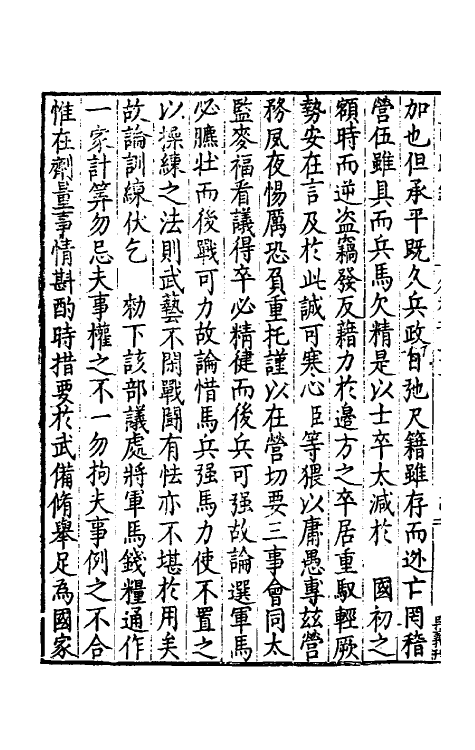 加也但承平既久兵政日弛尺籍雖存而逃亡罔稽
營伍雖具而兵馬欠精是以士卒太減於　國初之
額時而逆盗竊發反藉力於邉方之卒居重馭輕厥
勢安在言及於此誠可寒心臣等猥以庸愚專兹營
務夙夜惕厲恐負重托謹以在營切要三事㑹同太
監麥福看議得卒必精健而後兵可强故論選軍馬
必臕壯而後戰可力故論惜馬兵强馬力使不置之
以操練之法則武藝不閑戰鬪有怯亦不堪於用矣
故論訓練伏乞　勑下該部議處將軍馬錢糧通作
一家計筭勿忌夫事權之不一勿拘夫事例之不合
惟在劑量事情斟酌時措要於武備脩舉足為國家